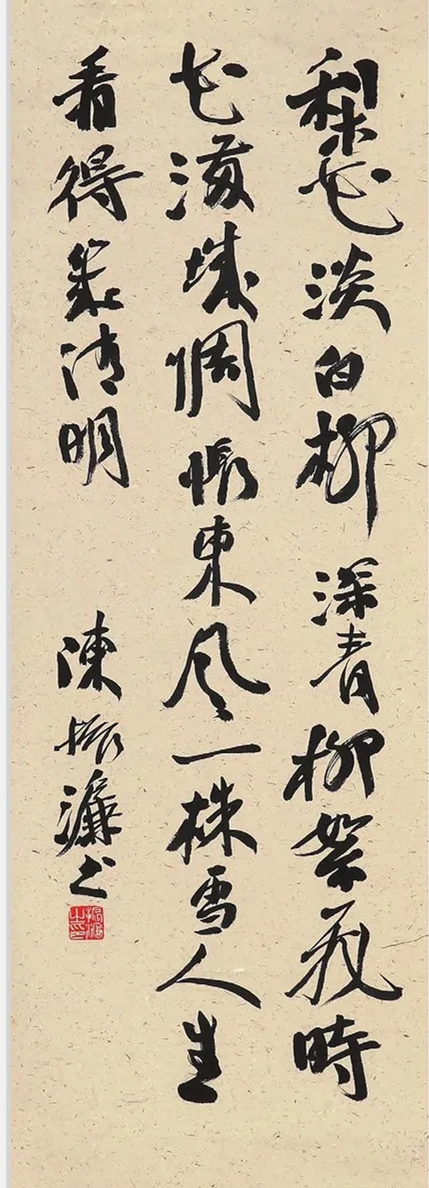 梨花淡白柳深青柳絮飛時
花滿城惆悵東風一株雪人生
看得幾清明
陳振濂书
振濂之印